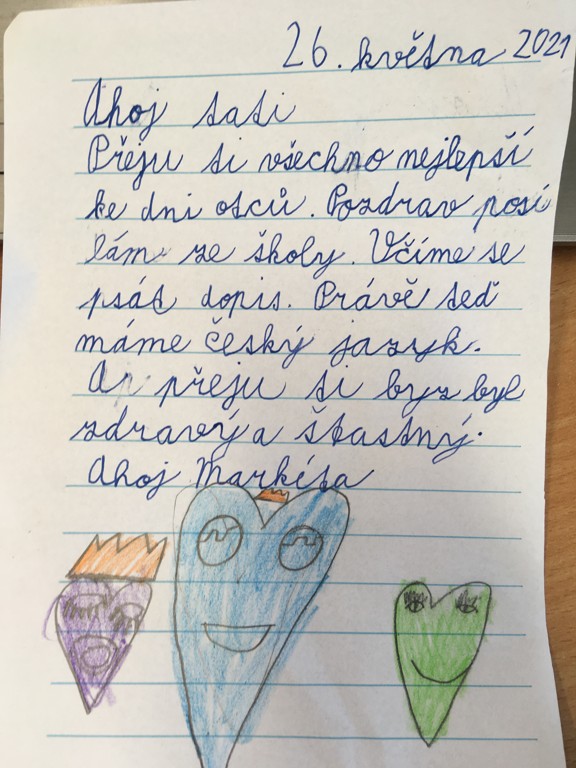 26. května 2021
Ahoj tati
Přeju ti všechno nejlepší
ke dni otců. Pozdrav posí
lám ze školy. Včíme se
psát dopis. Právě teď
máme český jazyk.
A přeju ti byz byl
zdravý a štastný.
Ahoj Markéta